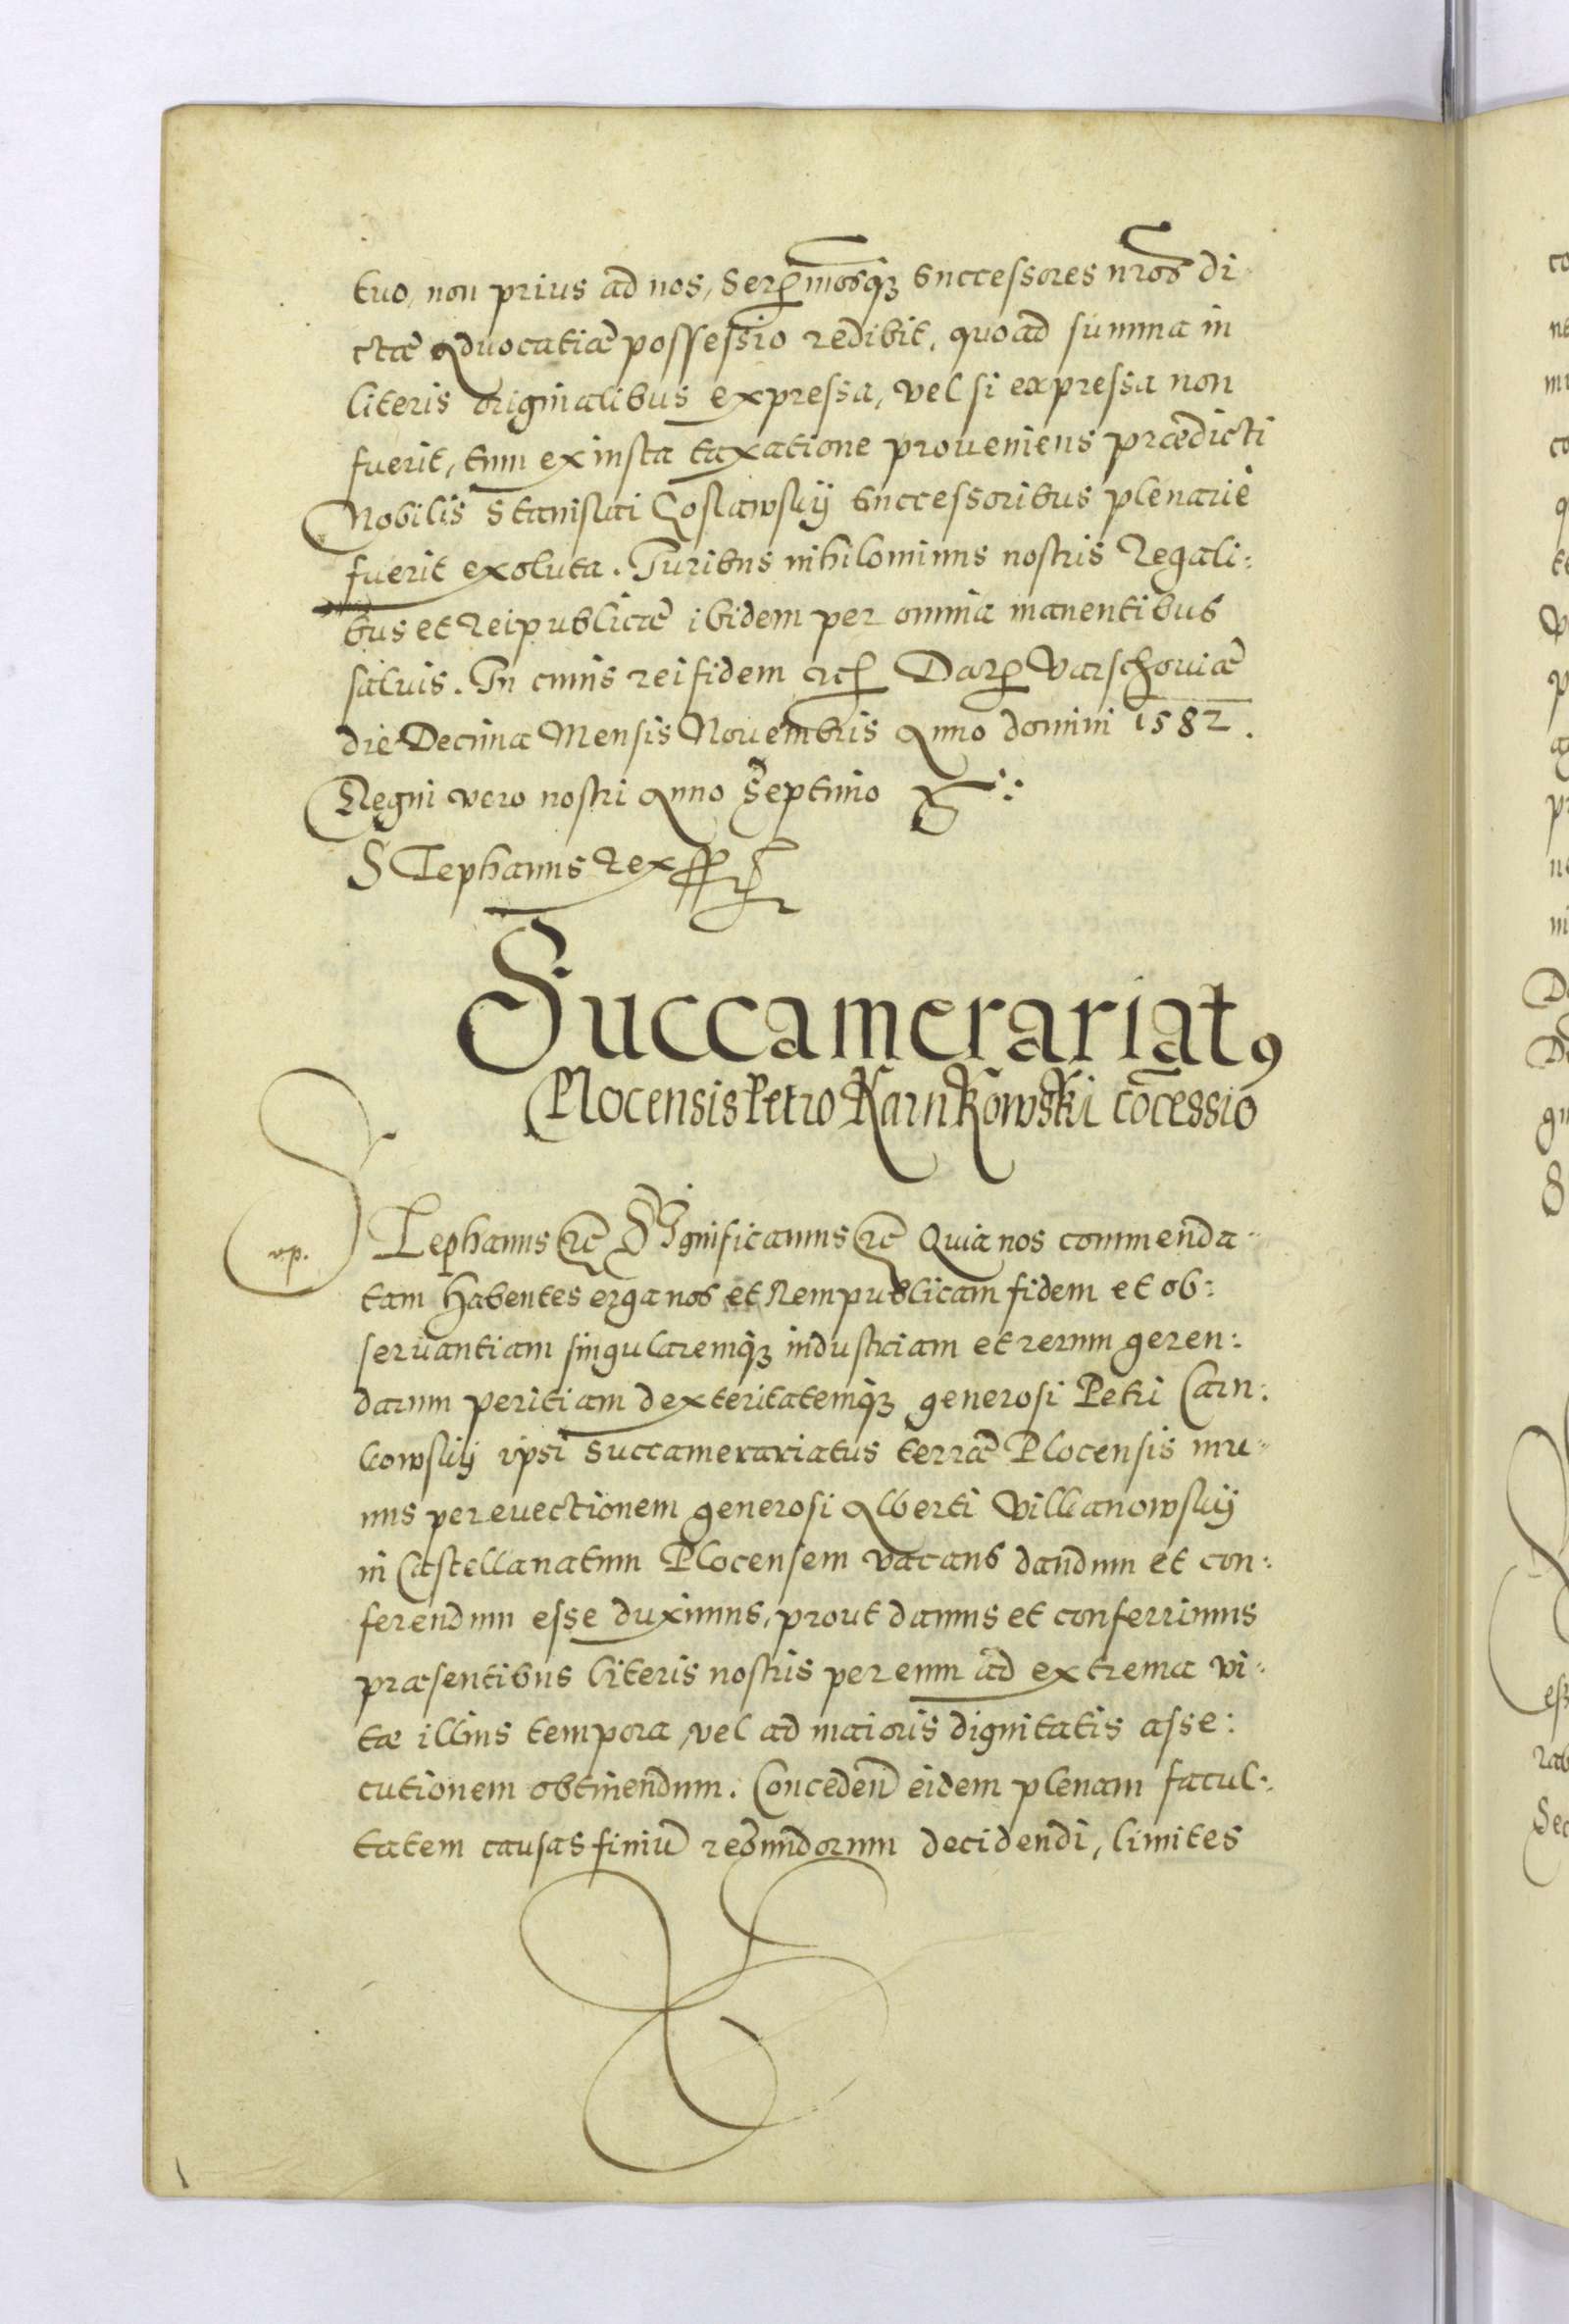 tuo, non prius ad nos, Ser̄mosq₃ Successores nr̄os di
ctæ Aduocatiæ possessio redibit, quoad summa in
literis originalibus expressa, vel si expressa non
fuerit, tum ex iusta taxatione proueniens prædicti
Nobilis Stanislai Coslawskij Successoribus plenariè
fuerit exoluta. Juribus nihilominus nostris Regali:
bus et Reipublicæ ibidem per omnia manentibus
saluis. In cuius rei fidem etc. Dat. Varschouiæ
die Decima Mensis Nouembris Anno domini 1582.
Regni vero nostri Anno Septimo
Stephanus Rex
Succamerariatꝯ
Plocensis Petro Karnkowski cōcessio
Stephanus etc Significamus etc Quia nos commenda-
vp.
tam habentes erga nos et Rempublicam fidem et ob:
seruantiam singularemq₃ industriam et rerum geren:
darum peritiam dexteritatemq₃ generosi Petri Carn:
kowskij ipsi Succamerariatus terræ Plocensis mu-
nus per euectionem generosi Alberti Wilkanowskij
in Castellanatum Plocensem vacans dandum et con:
ferendum esse duximus, prout damus et conferrimus
præsentibus literis nostris per eum ad extrema vi-
tæ illius tempora, vel ad maioris dignitatis asse:
cutionem obtinendum. Conceden̄ eidem plenam facul:
tatem causas finiū regundorum decidendi, limites